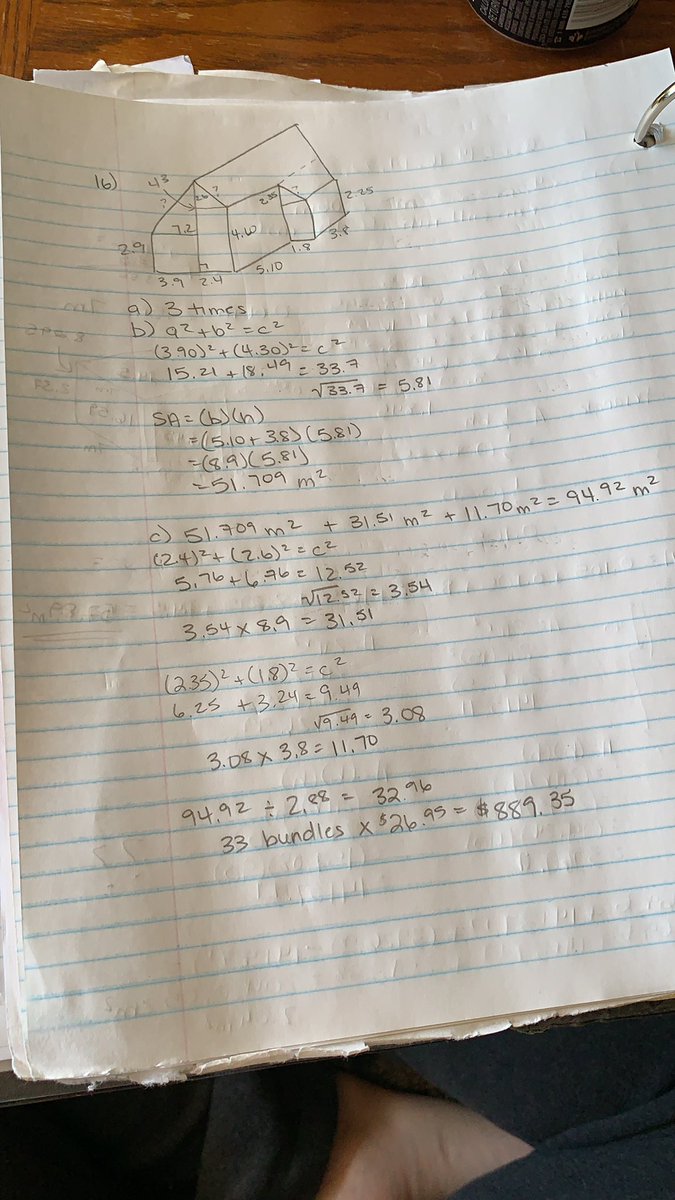 16)
4.3
?
2.6
?
2.35
?
2.25
7.2
4.60
2.9
3.8
1.8
5.10
3.9 2.4
a) 3 times
b) a² + b² = c²
(3.90)² + (4.30)² = c²
15.21 + 18.49 = 33.7
√33.7 = 5.81
SA = (b)(h)
= (5.10 + 3.8) (5.81)
= (8.9)(5.81)
= 51.709 m²
c) 51.709 m² + 31.51 m² + 11.70 m² = 94.92 m²
(2.4)² + (2.6)² = c²
5.76 + 6.76 = 12.52
√12.52 = 3.54
3.54 × 8.9 = 31.51
(2.35)² + (1.8)² = c²
6.25 + 3.24 = 9.49
√9.49 = 3.08
3.08 × 3.8 = 11.70
94.92 ÷ 2.88 = 32.96
33 bundles × $26.95 = $889.35